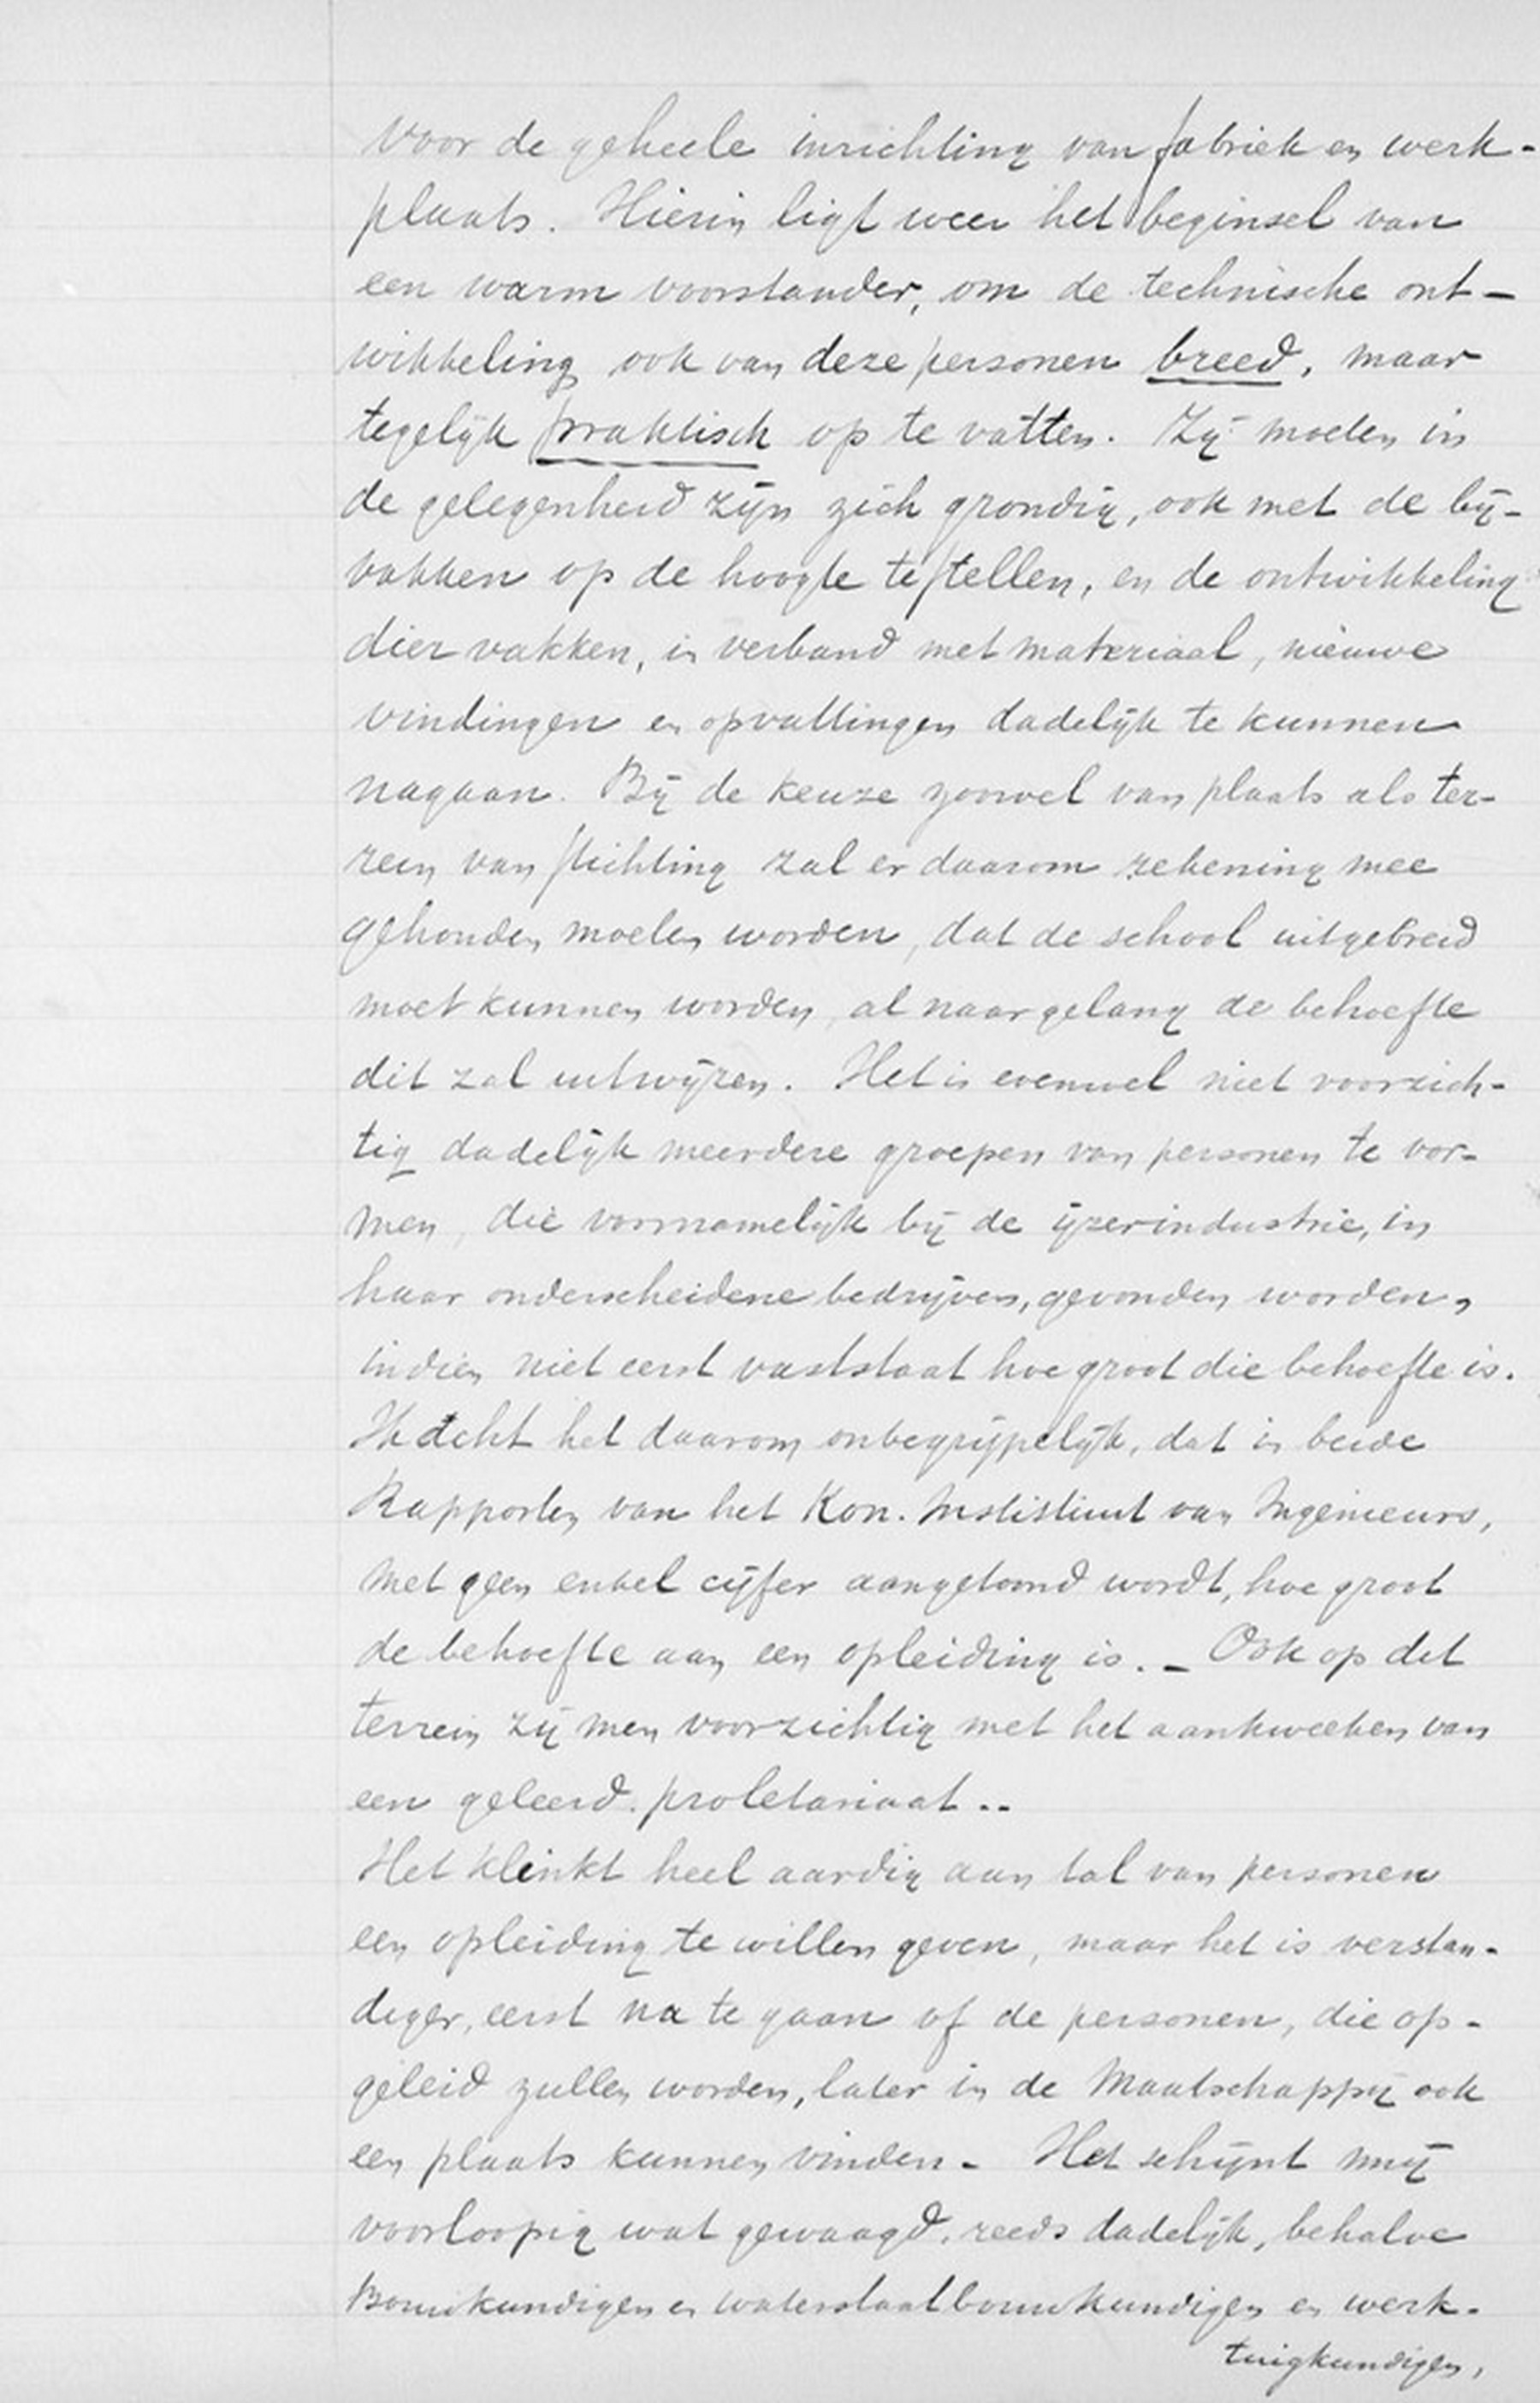 voor de geheele inrichting van fabriek en werk-
plaats. Hierin ligt weer het beginsel van
een warm voorstander, om de technische ont-
wikkeling ook van deze personen breed, maar
tegelijk praktisch op te vatten. Zij moeten in
de gelegenheid zijn zich grondig, ook met de bij-
vakken op de hoogte te stellen, en de ontwikkeling
dier vakken, in verband met materiaal, nieuwe
vindingen en opvattingen dadelijk te kunnen
nagaan. Bij de keuze zoowel van plaats als ter-
rein van stichting zal er daarom rekening mee
gehouden moeten worden, dat de school uitgebreid
moet kunnen worden, al naar gelang de behoefte
dit zal uitwijzen. Het is evenwel niet voorzich-
tig dadelijk meerdere groepen van personen te vor-
men, die voornamelijk bij de ijzerindustrie, in
haar onderscheidene bedrijven, gevonden worden,
indien niet eerst vaststaat hoe groot die behoefte is.
Ik acht het daarom onbegrijpelijk, dat in beide
Rapporten van het Kon. Instistuut van Ingenieurs,
met geen enkel cijfer aangetoond wordt, hoe groot
de behoefte aan een opleiding is. - Ook op dit
terrein zij men voorzichtig met het aankweeken van
een geleerd. proletariaat..
Het klinkt heel aardig aan tal van personen
een opleiding te willen geven, maar het is verstan-
diger, eerst na te gaan of de personen, die op-
geleid zullen worden, later in de Maatschappij ook
een plaats kunnen vinden. - Het schijnt mij
voorloopig wat gewaagd, reeds dadelijk, behalve
Bouwkundigen en waterstaatbouwkundigen en werk-
tuigkundigen,